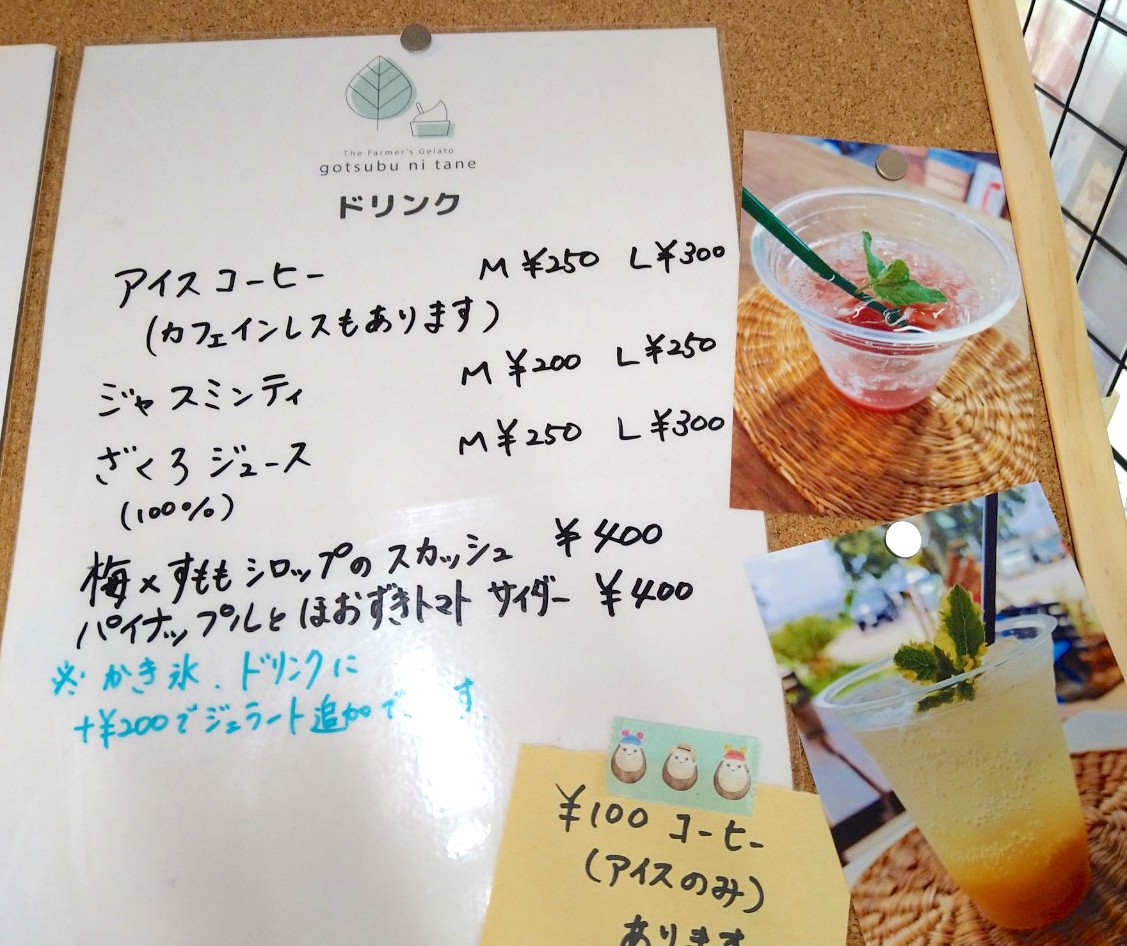 The Farmer's Gelato
gotsubu ni tane
ドリンク
アイスコーヒー M ¥250 L ¥300
(カフェインレスもあります)
ジャスミンティ M ¥200 L ¥250
ざくろジュース M ¥250 L ¥300
(100%)
梅×すももシロップのスカッシュ ¥400
パイナップルとほおずきトマトサイダー ¥400
※かき氷、ドリンクに
+¥200でジェラート追加で す
¥100 コーヒー
(アイスのみ)
あります